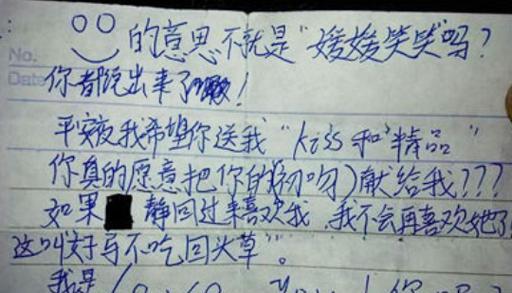 的意思不就是"媛媛笑笑"吗?
No.
Date
你都说出来了啊!
平安夜我希望你送我"kiss和精品"
你真的愿意把你的(初吻)献给我???
如果 静回过来喜欢我,我不会再喜欢她了
这叫好马不吃回头草"。
我是